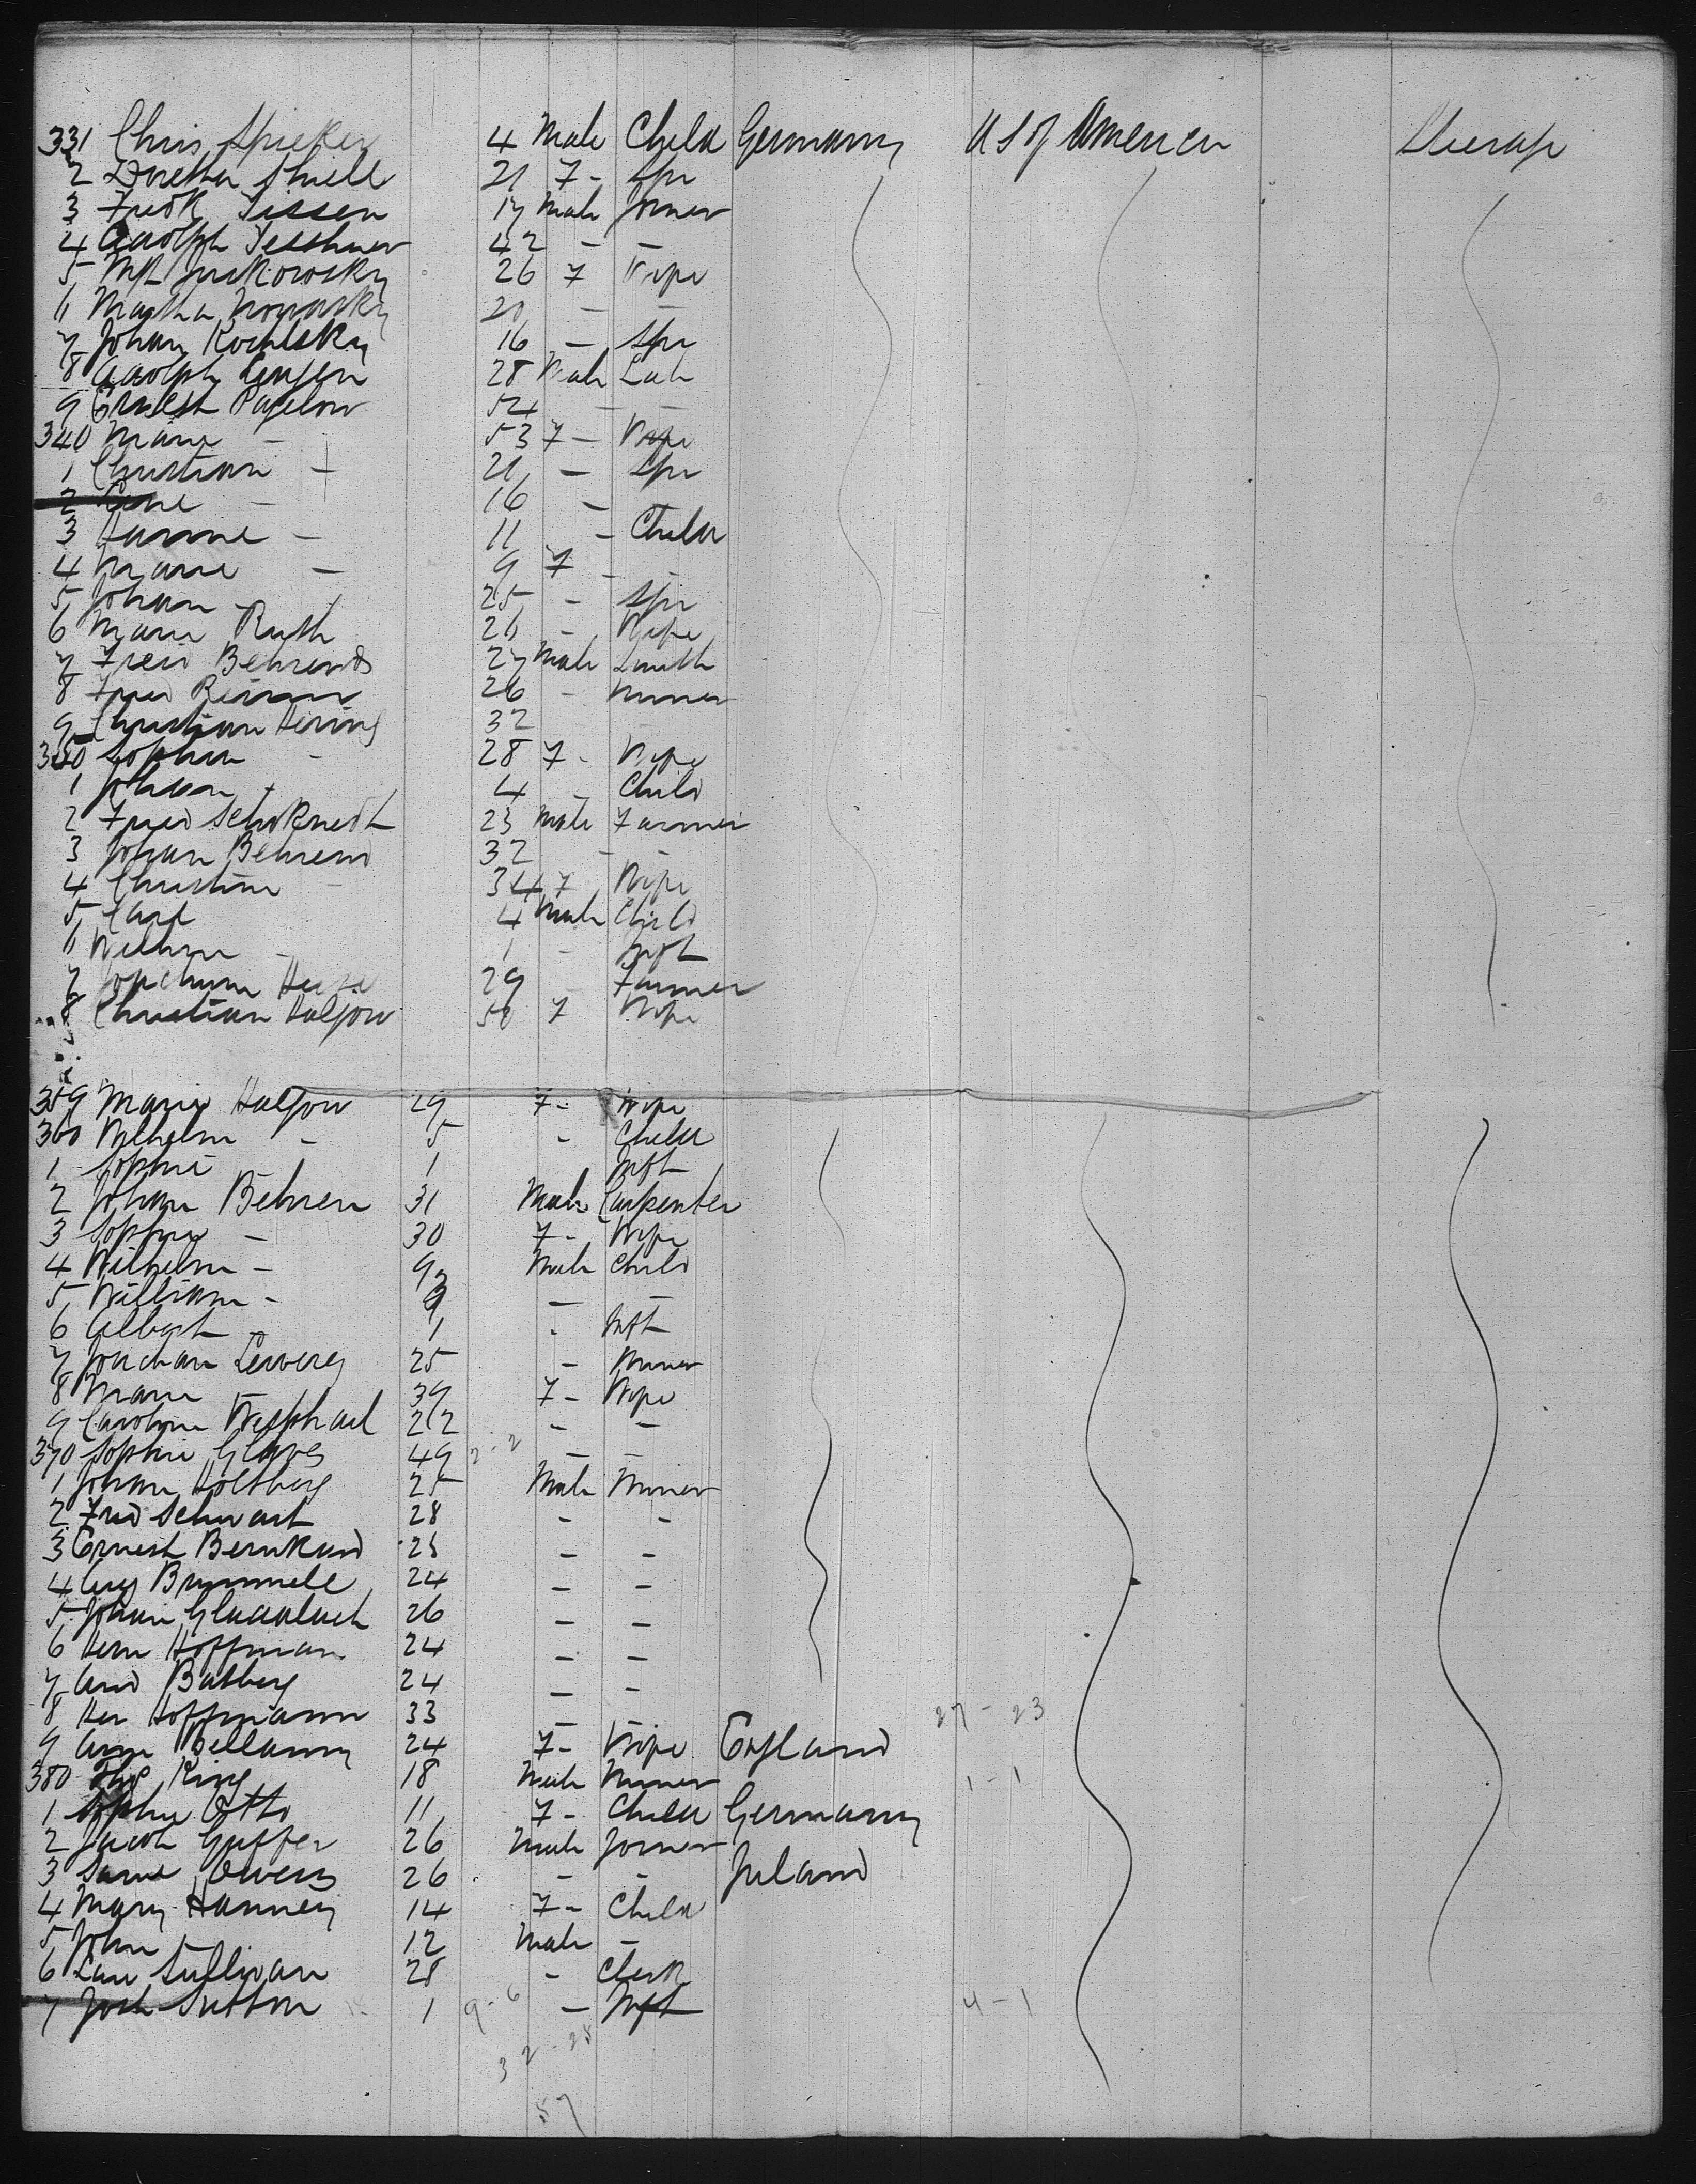 331 Chris Spieker 4 Male Child Germany US of America Steerage
2 Doretha Thiell 21 F - Spr
3 Fredk Tissen 17 Male Joiner
4 Adolph Tesshner 42 - -
5 26 F Wife
6 Martha 20 - -
7 Johan 16 - Spr
8 Adolph 28 Male Lab
9 Ernest Pagelow 54 - -
340 Marie - 53 F - Wife
1 Christian - 21 - Spr
2 16 -
3 Hanne - 11 - Child
4 Marie - 9 F - -
5 Johan - 25 - Spr
6 Marie Ruth 26 - Wife
7 Fred Behrends 27 Male Smith
8 Fred 26 - Miner
9 Christian Hering 32
350 Sophia - 28 F - Wife
1 Johann - 4 - Child
2 Fred Schoknecht 23 Male Farmer
3 Johan Behrend 32 - -
4 Christine - 34 F Wife
5 Carl 4 Male Child
6 Wilhm - 1 - Inft
7 29 Farmer
8 Christian Halyow 50 F Wife
359 Marie Halyow 29 F - Wife
360 Wilhelm - 5 - Child
1 Sophie 1 Inft
2 Johan Behren 31 Male Carpenter
3 Sophie - 30 F - Wife
4 Wilhelm - 9 Male Child
5 William - - -
6 Albert - 1 - Inft
7 25 - Miner
8 Marie 39 F - Wife
9 Caroline Westphael 22 - -
370 Sophie 49 - -
1 Johan Holtberg 25 Male Miner
2 Fred Schwart 28 - -
3 Ernest 25 - -
4 Aug Brummell 24 - -
5 Johan 26 - -
6 Herm Hoffman 24 - -
7 Batberg 24 - -
8 Her Hoffmann 33 - - 27 - 23
9 Ann Bellamy 24 F - Wife England
380 Thos King 18 Male Miner 1 - 1
1 Sophie Otto 11 F - Child Germany
2 Jacob 26 Male Joiner
3 Owens 26 - - Ireland
4 Mary Hanney 14 F - Child
5 John - 12 Male -
6 Sullivan 28 - Clerk
7 Josh Sutton 1 9 - 6 - Inft 4 - 1
32 - 28
59